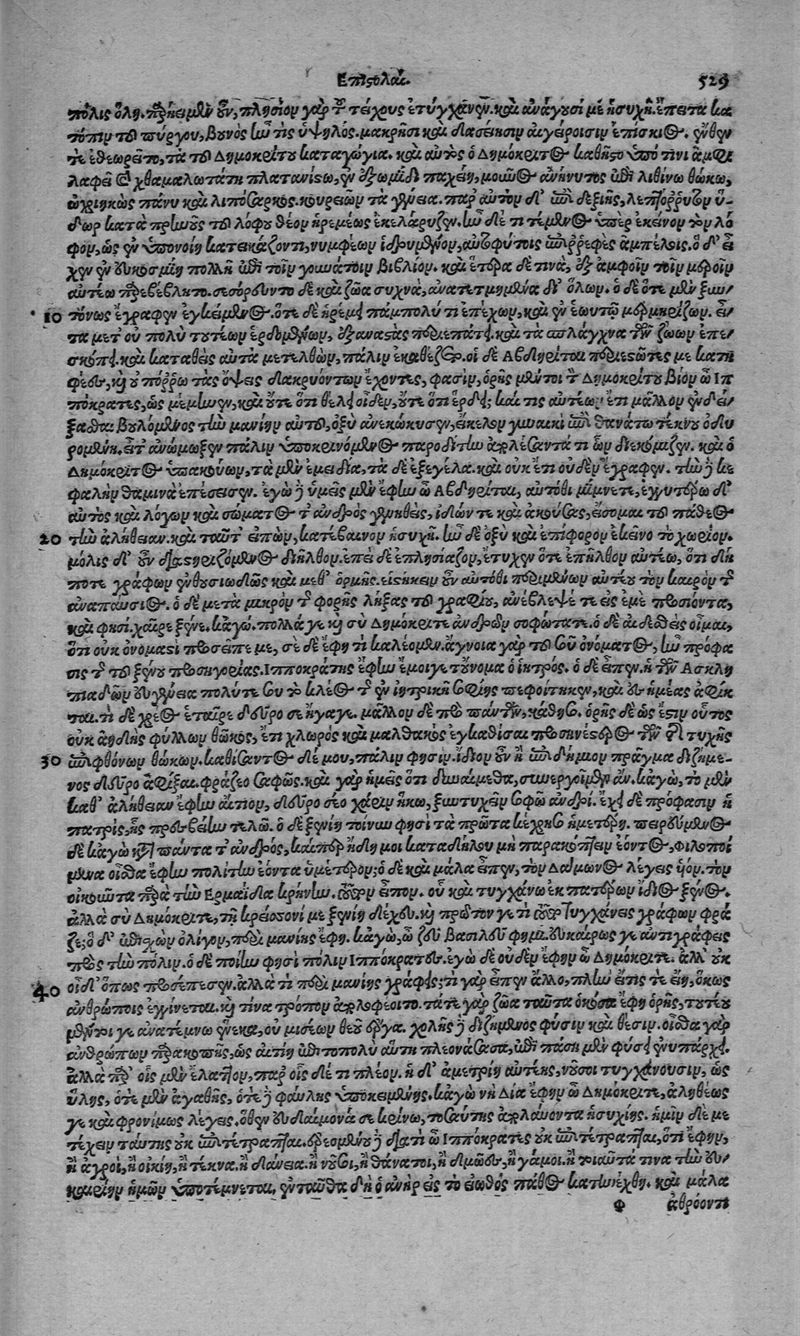 Επιςολαί. 529
πόλις ὅλη. προῄειμεν οὖν, πλησίον γὰρ τοῦ τείχους ἐτύγχανεν. καὶ ἀνάγουσί με ἡσυχῆ. ἔπειτα κα
τόπιν τοῦ πύργου, βουνὸς ἦν τις ὑψηλὸς. μακρῇσι καὶ δασείῃσιν αἰγείροισιν ἐπίσκιος. ἔνθεν
τε ἐθεωρεῖτο, τὰ τοῦ Δημοκρίτου καταγώγια. καὶ αὐτὸς ὁ Δημόκριτος καθῆςο ὑπό τινι ἀμφι
λαφεῖ καὶ χθαμαλωτάτῃ πλατανίςῳ, ἐν ἐξωμίδι παχείῃ, μοῦνος ἀνήλιπος ἐπὶ λιθίνῳ θώκῳ,
ὠχριηκὼς πάνυ καὶ λιπόσαρκος. κουρεῶν τὰ γένεια. παρ' αὐτὸν δ' ἐπὶ δεξιῆς, λεπτόρρυτον ὕ-
δωρ κατὰ πρηνοῦς τοῦ λόφου θέον ἠρεμέως ἐκελάρυζεν. ἦν δέ τι τέμενος ὑπὲρ ἐκεῖνον τὸν λό
φον, ὡς ἐν ὑπονοίῃ κατεικάζοντι, νυμφέων ἱδρυμένον, αὐτοφύτοις ἐπηρεφὲς ἀμπέλοις. ὁ δ' εἶ
χεν ἐν εὐκοσμίῃ πολλῇ ἐπὶ τοῖν γουνάτοιν βιβλίον. καὶ ἕτερα δέ τινα, ἐξ ἀμφοῖν τοῖν μεροῖν
αὐτέῳ προβέβλητο. σεσόρευντο δὲ καὶ ζῶα συχνὰ, ἀνατετμημένα δι' ὅλων. ὁ δὲ ὁτὲ μὲν ξυν-
10 τόνως ἔγραφεν ἐγκείμενος. ὁτὲ δὲ ἠρέμει πάμπολύ τι ἐπέχων, καὶ ἐν ἑωυτῷ μερμηρίζων. εἶ-
τα μετ' οὐ πολὺ τουτέων ἐρδομένων, ἐξαναςὰς περιεπάτει. καὶ τὰ σπλάγχνα τῶν ζώων ἐπε-
σκόπει. καὶ καταθεὶς αὐτὰ μετελθὼν, πάλιν ἐκαθέζετο. οἱ δὲ Αβδηρῖται περιεςῶτές με κατη
φέες, καὶ οὐ πόρρω τὰς ὄψεις δακρυόντων ἔχοντες, φασὶν, ὁρῇς μέντοι τὸν Δημοκρίτου βίον ὦ Ιπ
πόκρατες, ὡς μέμηνεν, καὶ οὔτε ὅτι θέλει οἶδεν, οὔτε ὅτι ἔρδει; καί τις αὐτέων ἔτι μᾶλλον ἐνδεί-
ξασθαι βουλόμενος τὴν μανίην αὐτοῦ, ὀξὺ ἀνεκώκυσεν, εἴκελον γυναικὶ ἐπὶ θανάτῳ τέκνου ὀδυ
ρομένῃ. εἶτ' ἀνώμωξεν πάλιν ὑποκρινόμενος παροδίτην ἀπολέσαντά τι ὧν διεκόμιζεν. καὶ ὁ
Δημόκριτος ὑπακούων, τὰ μὲν ἐμειδία, τὰ δὲ ἐξεγέλα. καὶ οὐκ ἔτι οὐδὲν ἔγραφεν. τὴν δὲ κε
φαλὴν θαμινὰ ἐπέσεισεν. ἐγὼ δὲ ὑμεῖς μὲν ἔφην ὦ Αβδηρῖται, αὐτόθι μίμνετε, ἐγγυτέρω δ'
αὐτὸς καὶ λόγων καὶ σώματος τἀνδρὸς γενηθεὶς, ἰδών τε καὶ ἀκούσας, εἴσομαι τοῦ πάθεος
20 τὴν ἀλήθειαν. καὶ ταῦτ' εἰπὼν, κατέβαινον ἡσυχῆ. ἦν δὲ ὀξὺ καὶ ἐπίφορον ἐκεῖνο τὸ χωρίον.
μόλις δ' οὖν διαςηριζόμενος διῆλθον. ἐπεὶ δὲ ἐπλησίαζον, ἔτυχεν ὅτε ἐπῆλθον αὐτέῳ, ὅτι δή
ποτε γράφων ἐνθουσιωδῶς καὶ μεθ' ὁρμῆς. εἱςήκειν οὖν αὐτόθι περιμένων αὐτέου τὸν καιρὸν τῆς
ἀναπαύσιος. ὁ δὲ μετὰ μικρὸν τῆς φορῆς λήξας τοῦ γραφίου, ἀνέβλεψέ τε εἰς ἐμὲ προσιόντα,
καὶ φησί. χαῖρε ξεῖνε. κἀγώ. πολλά γε καὶ σὺ Δημόκριτε ἀνδρῶν σοφώτατε. ὁ δὲ αἰδεσθεὶς οἶμαι,
ὅτι οὐκ ὀνομαςὶ προσεῖπέ με, σὲ δὲ ἔφη τί καλέομεν. ἄγνοια γὰρ τοῦ σοῦ ὀνόματος, ἦν πρόφα
σις τῆς τοῦ ξένου προσηγορίας. Ιπποκράτης ἔφην ἔμοιγε τοὔνομα ὁ ἰητρός. ὁ δὲ εἶπεν. ἡ τῶν Ασκλη
πιαδῶν εὐγένεια πολύ τε σου τὸ κλέος τῆς ἐν ἰητρικῇ σοφίης πεφοίτηκεν, καὶ εἰς ἡμέας ἀφῖκ
ται. τί δὲ χρέος ἑταῖρε δεῦρό σε ἤγαγε. μᾶλλον δὲ πρὸ πάντων, κάθησο. ὁρῇς δὲ ὡς ἔςιν οὗτος
οὐκ ἀηδὴς φύλλων θῶκος, ἔτι χλωρὸς καὶ μαλθακὸς ἐγκαθίσαι προσηνέςερος τῶν τῆς τύχης
30 ἐπιφθόνων θώκων. καθίσαντος δέ μου, πάλιν φησίν. ἴδιον οὖν ἢ ἐπιδήμιον πρᾶγμα διζήμε-
νος δεῦρο ἀφῖξαι. φράζεο σαφῶς. καὶ γὰρ ἡμεῖς ὅτι δυναίμεθα, συνεργοῖμεν ἄν. κἀγὼ, τὸ μὲν
καθ' ἀλήθειαν ἔφην αἴτιον, δεῦρο σέο χάριν ἥκω, ξυντυχεῖν σοφῷ ἀνδρί. ἔχει δὲ πρόφασιν ἡ
πατρὶς, ἧς πρεσβείην τελῶ. ὁ δὲ ξενίῃ τοίνυν φησὶ τὰ πρῶτα κέχρησο ἡμετέρῃ. πειρεύμενος
δὲ κἀγὼ κατὰ πάντα τἀνδρὸς, καίπερ ἤδη μοι καταδήλου μὴ παρακόπτειν ἐόντος, Φιλοποί
μενα οἶσθα ἔφην πολίτην ἐόντα ὑμέτερον; ὁ δὲ καὶ μάλα εἶπεν, τὸν Δάμωνος λέγεις υἱόν. τὸν
οἰκεῦντα παρὰ τὴν Ερμαΐδα κρήνην. τοῦτον εἶπον. οὗ καὶ τυγχάνω ἐκ πατέρων ἴδιος ξεῖνος.
ἀλλὰ σὺ Δημόκριτε, τῇ κρείσσονί με ξενίῃ δέχευ. καὶ πρῶτόν γε τί τοῦτο τυγχάνεις γράφων φρά
ζε; ὁ δ' ἐπισχὼν ὀλίγον, περὶ μανίης ἔφη. κἀγὼ, ὦ Ζεῦ βασιλεῦ φημί. εὐκαίρως γε ἀντιγράφεις
πρὸς τὴν πόλιν. ὁ δὲ ποίην φησὶ πόλιν Ιππόκρατες. ἐγὼ δὲ οὐδὲν ἔφην ὦ Δημόκριτε. ἀλλ' οὐκ
40 οἶδ' ὅπως προέπεσεν. ἀλλὰ τί περὶ μανίης γράφεις; τί γὰρ εἶπεν ἄλλο, πλὴν ἥτις τε εἴη, ὅκως
ἀνθρώποις ἐγγίνεται. καὶ τίνα τρόπον ἀπολωφέοιτο. τά τε γὰρ ζῶα ταῦτα ὁκόσα ἔφη ὁρῇς, τούτου
μέντοι γε ἀνατέμνω ἕνεκα, οὐ μισέων θεοῦ ἔργα. χολῆς δὲ διζήμενος φύσιν καὶ θέσιν. οἶσθα γὰρ
ἀνθρώπων παρακοπῆς, ὡς αἰτίη ἐπὶ τοπολὺ αὕτη πλεονάσασα, ἐπεὶ πᾶσι μὲν φύσει ἐνυπάρχει.
ἀλλὰ παρ' οἷς μὲν ἔλαττον, παρ' οἷς δέ τι πλέον. ἡ δ' ἀμετρίη αὐτέης, νοῦσοι τυγχάνουσιν, ὡς
ὕλης, ὁτὲ μὲν ἀγαθῆς, ὁτὲ δὲ φαύλης ὑποκειμένης. κἀγὼ νὴ Δία ἔφην ὦ Δημόκριτε, ἀληθέως
γε καὶ φρονίμως λέγεις. ὅθεν εὐδαίμονά σε κρίνω, τοσαύτης ἀπολαύοντα ἡσυχίης. ἡμῖν δὲ με
τέχειν ταύτης οὐκ ἐπιτέτραπται. ἐρεομένου δὲ διὰ τί ὦ Ιππόκρατες οὐκ ἐπιτέτραπται, ὅτι ἔφην,
ἢ ἀγροὶ, ἢ οἰκίη, ἢ τέκνα. ἢ δάνεια. ἢ νοῦσοι, ἢ θάνατοι, ἢ δμῶες, ἢ γάμοι. ἢ τοιαῦτά τινα τὴν εὐ-
καιρίην ἡμῶν ὑποτέμνεται, ἐνταῦθα δὴ ὁ ἀνὴρ εἰς τὸ εἰωθὸς πάθος κατηνέχθη. καὶ μάλα
φ ἀθρόον τι